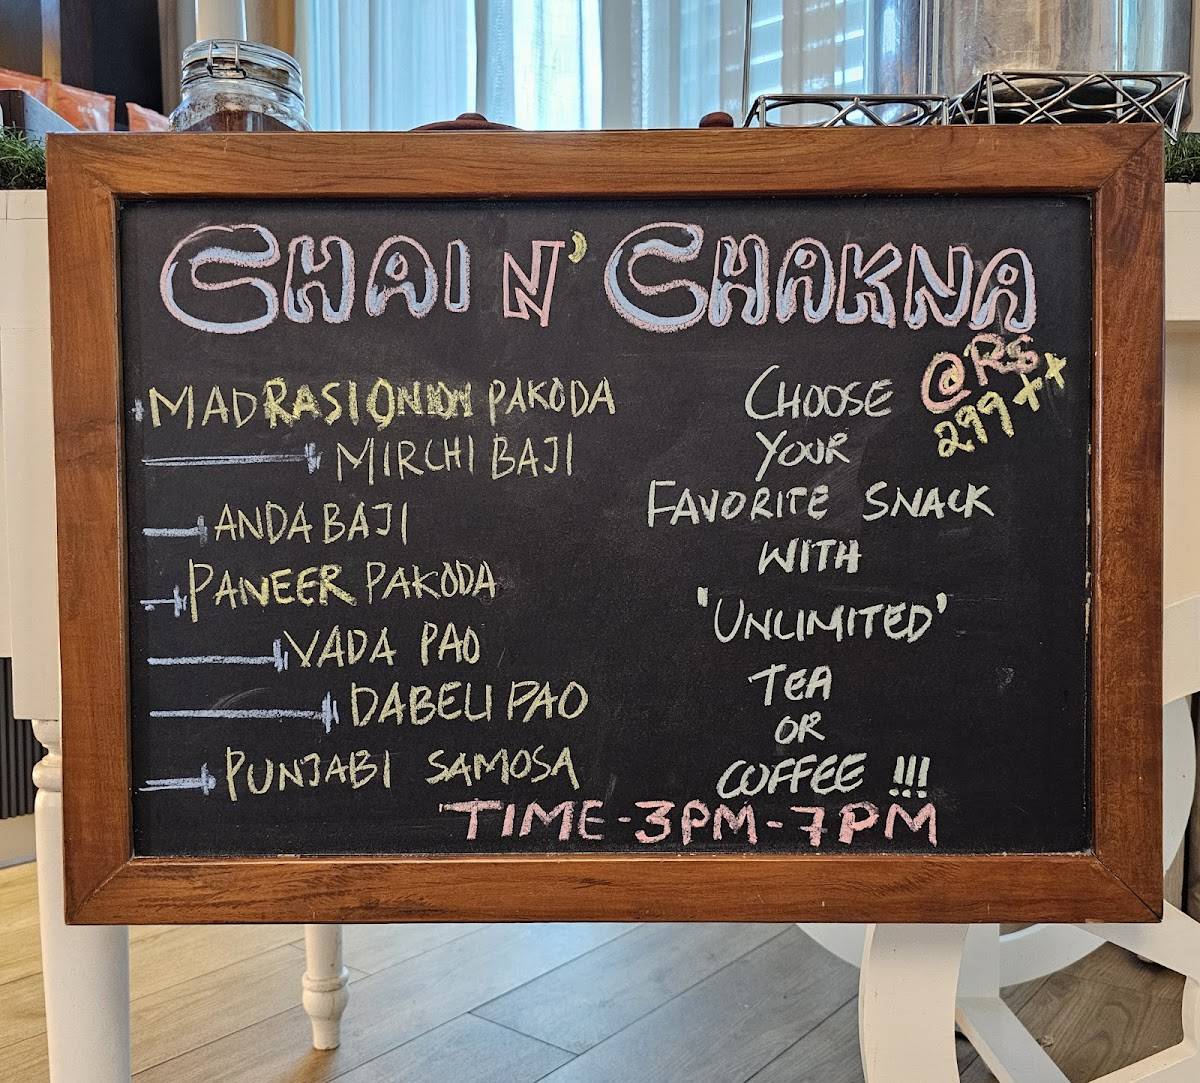 CHAI N' CHAKNA
@RS
299++
MADRASI ONION PAKODA
MIRCHI BAJI
ANDA BAJI
PANEER PAKODA
VADA PAO
DABELI PAO
PUNJABI SAMOSA
CHOOSE
YOUR
FAVORITE SNACK
WITH
'UNLIMITED'
TEA
OR
COFFEE !!!
TIME-3PM-7PM